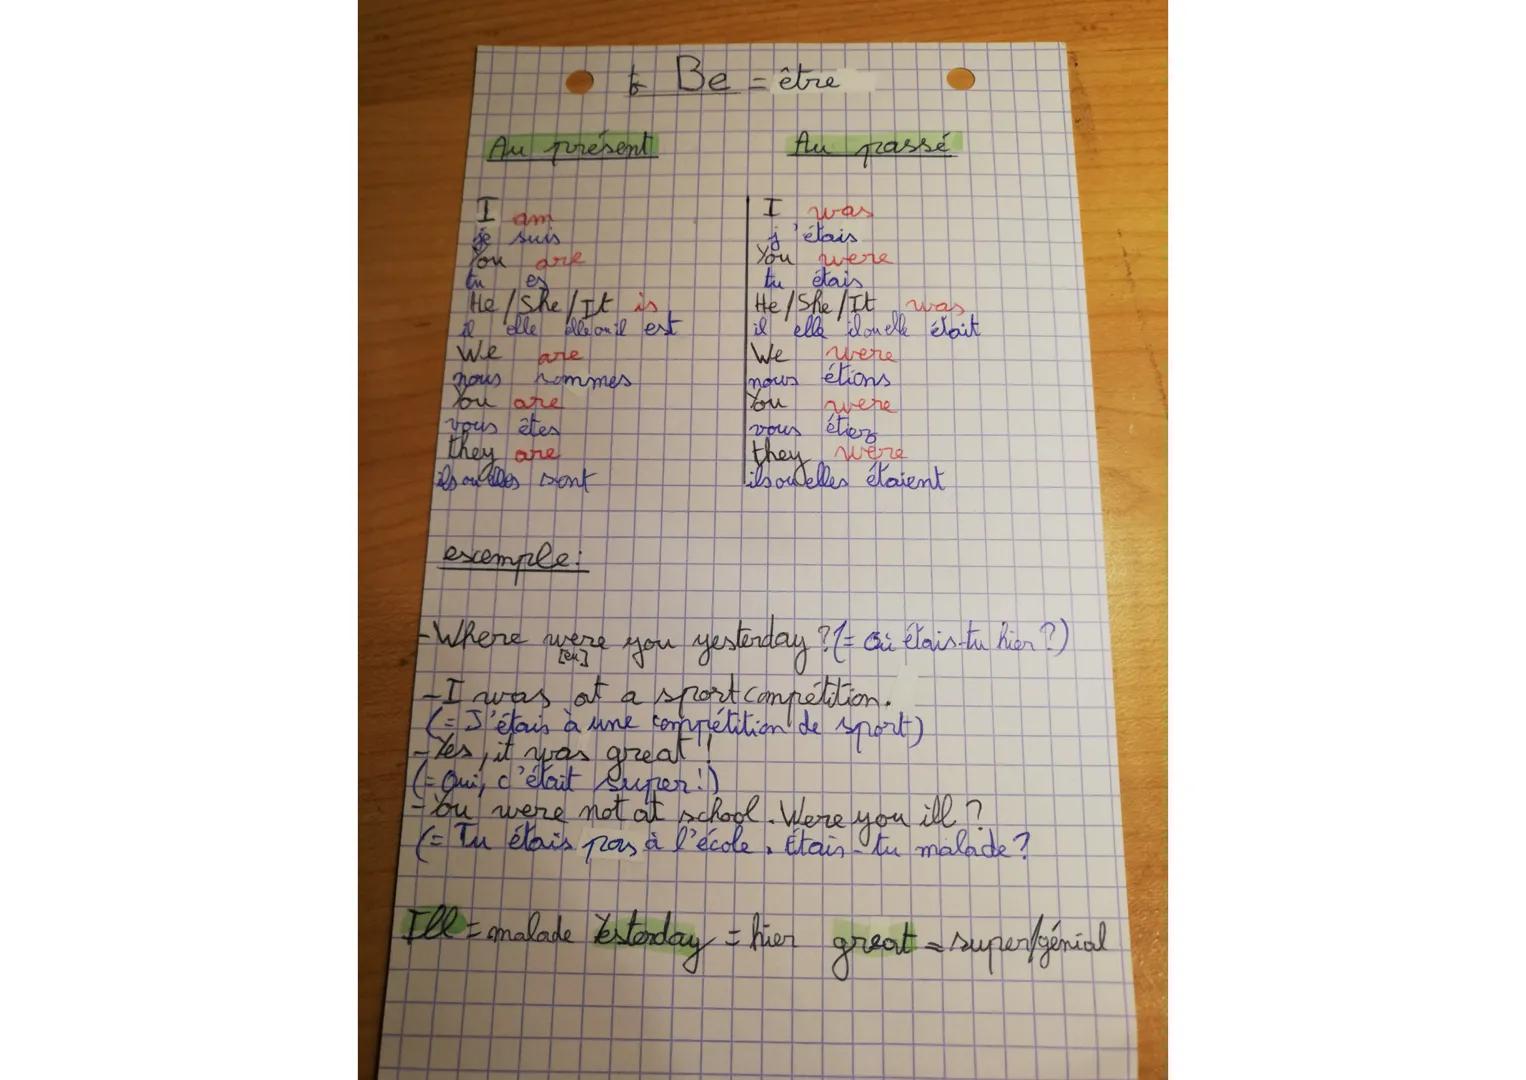 to Be = être
Au présent
I am
je suis
You are
tu es
He / She / It is
il elle elle ou il est
We are
nous sommes
You are
vous êtes
they are
ils ou elles sont
Au passé
I was
j'étais
You were
tu étais
He / She / It was
il elle il ou elle était
We were
nous étions
You were
vous étiez
they were
ils ou elles étaient
exemple:
- Where were you yesterday ? (= Où étais-tu hier ?)
[eu]
- I was at a sport compétition.
(= J'étais à une compétition de sport)
- Yes, it was great !
(= Oui, c'était super !)
- You were not at school. Were you ill ?
(= Tu étais pas à l'école. Étais-tu malade ?
Ill = malade Yesterday = hier great = super/génial